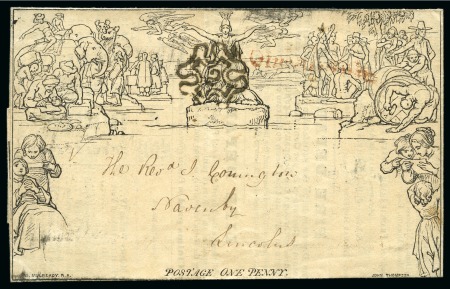 The Revd J. Conington
Navenby
Lincoln
POSTAGE ONE PENNY.
MULREADY. R.A.
JOHN THOMPSON